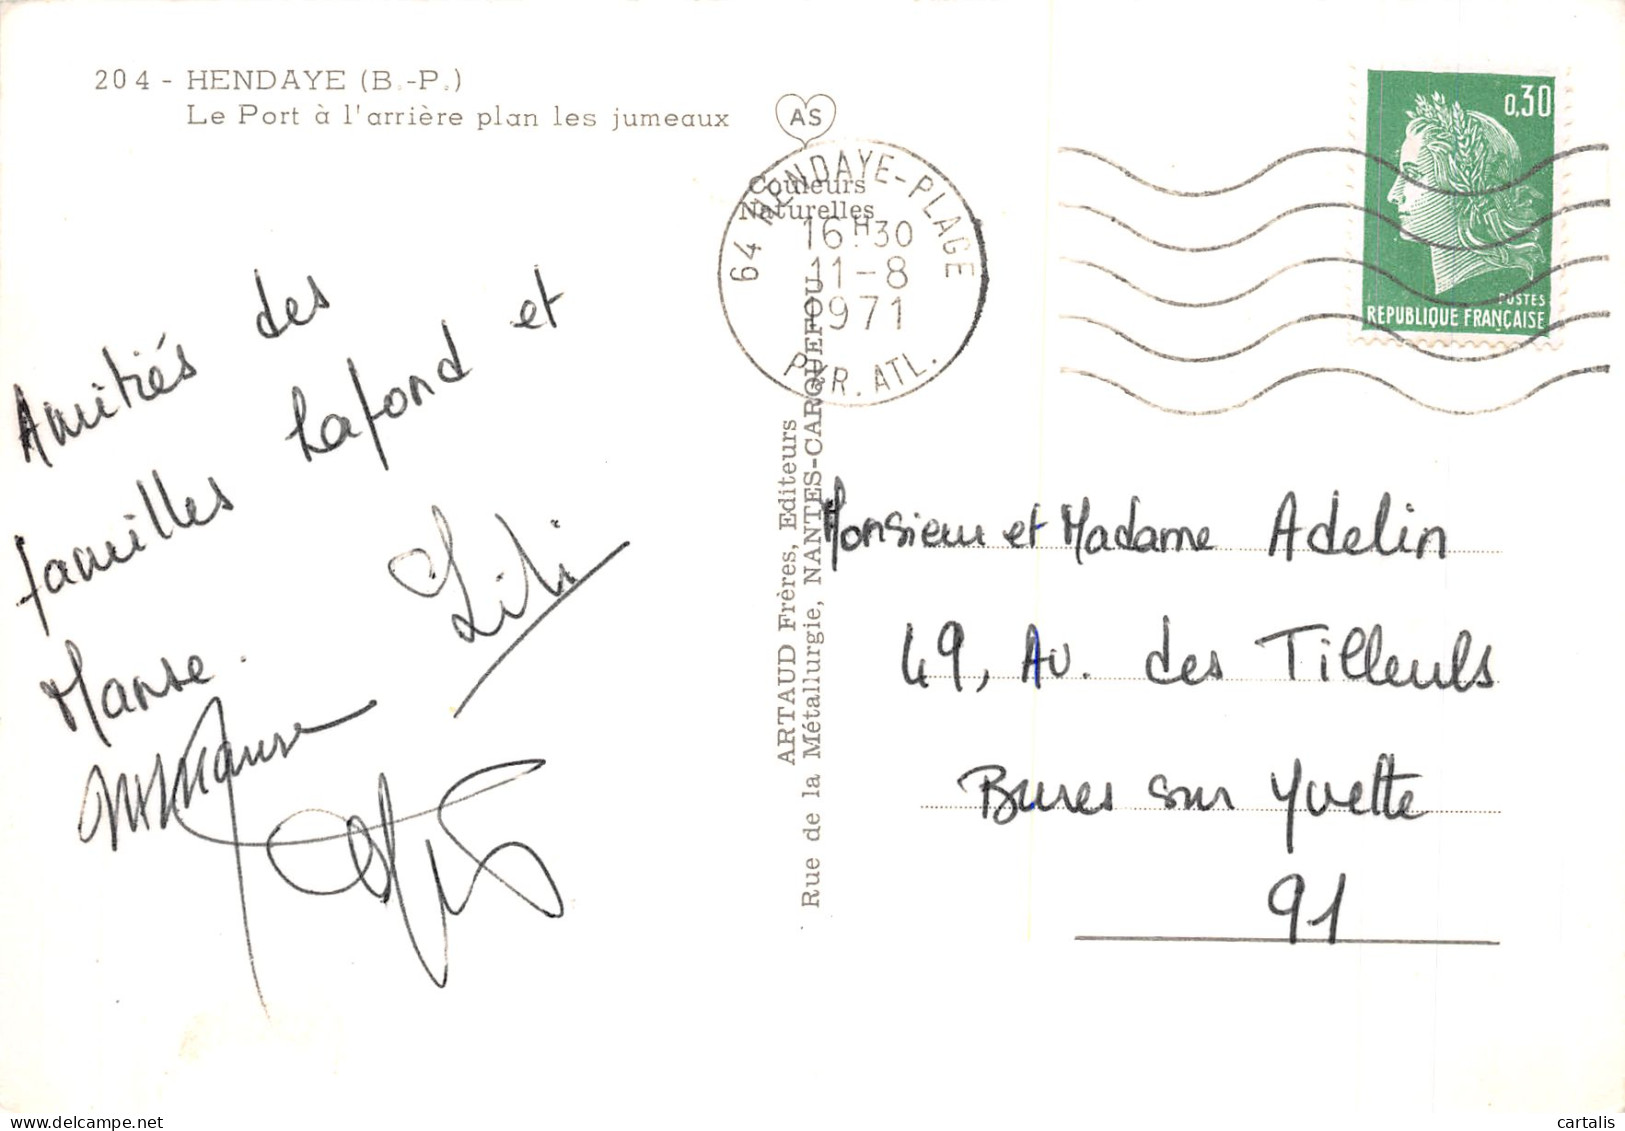 204 - HENDAYE (B.-P.)
Le Port à l'arrière plan les jumeaux
AS
Couleurs
Naturelles
64 HENDAYE-PLAGE
16H30
11-8
1971
PYR. ATL.
0,30
POSTES
REPUBLIQUE FRANÇAISE
Amitiés des
familles Lafond et
Manse.
Lili
ARTAUD Frères, Editeurs
Rue de la Métallurgie, NANTES-CARQUEFOU
Monsieur et Madame Adelin
49, Av. des Tilleuls
Bures sur Yvette
91
cartalis
delcampe.net